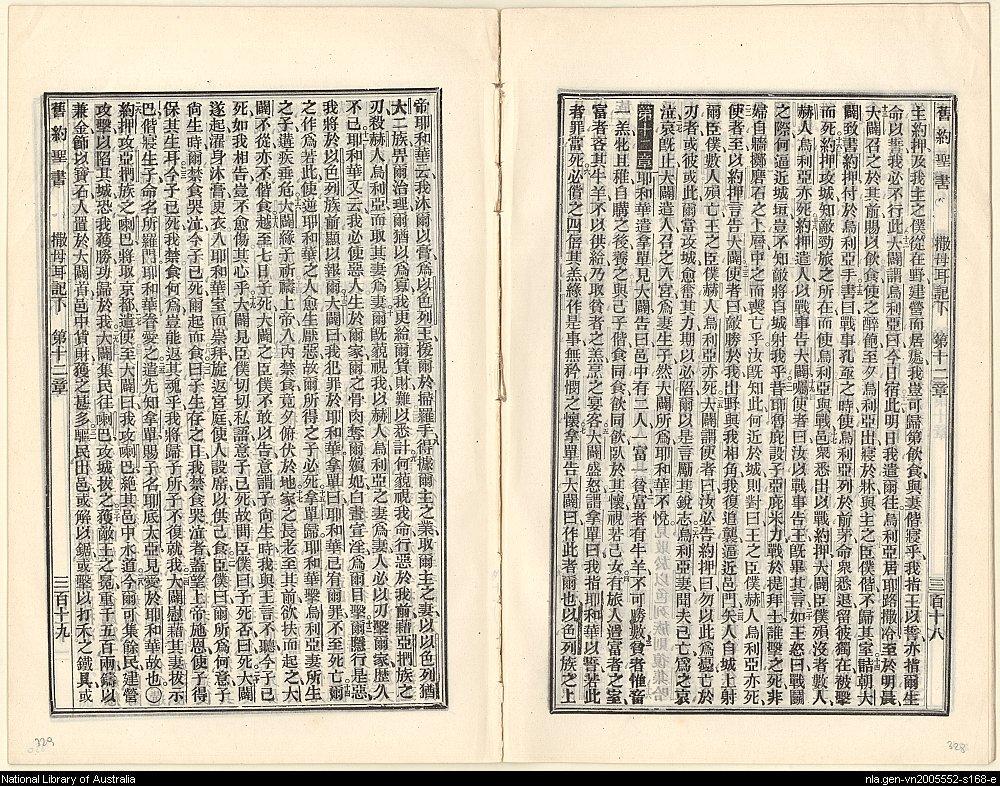 舊約聖書 撒母耳記下 第十二章 三百十八
主約押及我主之僕從在野建營而居處我豈可歸第飲食與妻偕寢乎我指王以誓亦指爾生
命以誓我必不行此大闢謂烏利亞曰今日宿此明日我遣爾往烏利亞居耶路撒冷至於明晨
大闢召之於其前賜以飲食使之醉範至夕烏利亞出寢於牀與主之臣僕偕不歸其室詰朝大
闢致書約押付於烏利亞手書曰戰事孔亟之時使烏利亞列於前茅命衆悉退留彼獨在被擊
而死約押攻城知敵勁旅之所在而使烏利亞與戰邑衆悉出以戰約押大闢臣僕殞沒者數人
赫人烏利亞亦死約押遣人以戰事告大闢囑使者曰汝以戰事告王旣畢其言如王怒曰戰鬪
之際何逼近城垣豈不知敵將自城射我乎昔耶魯庇設子亞庇米力戰於提拜士誰擊之死非
婦自牆擲磨石之上層中之而喪亡乎汝旣知此何近於城則對曰王之臣僕赫人烏利亞亦死
使者至以約押言告大闢使者曰敵勝於我出野與我相角我復追襲逼近邑門矢人自城上射
爾臣僕數人殞亡王之臣僕赫人烏利亞亦死大闢謂使者曰汝必告約押曰勿以此爲憂亡於
刃者或彼或此爾當攻城愈奮其力期以必陷爾以是言勵其銳志烏利亞妻聞夫已亡爲之哀
泣哀旣止大闢遣人召之入宮爲妻生子然大闢所爲耶和華不悅
第十二章 耶和華遣拿單見大闢告曰邑中有二人一富一貧富者有牛羊不可勝數貧者惟畜
一羔牝且稚自購之後養之與己子偕食同食飲同飲臥於其懷視若己女有旅人遭富者之室
富者吝其牛羊不以供給乃取貧者之羔烹之宴客大闢盛怒謂拿單曰我指耶和華以誓若此
者罪當死必償之四倍其羔緣作是事無矜憫之懷拿單告大闢曰作此者爾也以色列族之上
328
帝耶和華云我沐爾以膏爲以色列王援爾於掃羅手得據爾主之業取爾主之妻以以色列猶
大二族畀爾治理爾猶以爲寡我更給爾貨財難以悉計何藐視我命行惡於我前藉亞捫族之
刃殺赫人烏利亞而取其妻爲妻爾旣藐視我以赫人烏利亞之妻爲妻人必以刃擊爾家歷久
不已耶和華又云我必使惡人生於爾家爾之骨肉奪爾嬪妃白晝宣淫爲爾目擊爾隱行是惡
我將於以色列族前顯以報爾大闢曰我犯罪於耶和華拿單曰耶和華已宥爾罪不至死亡爾
之作爲若此使逆耶和華之人愈生厭惡故爾所得之子必死拿單歸耶和華擊烏利亞妻所生
之子遘疾垂危大闢緣子祈禱上帝入內禁食竟夕俯伏於地家之長老至其前欲扶而起之大
闢不從亦不偕食越至七日子死大闢之臣僕不敢以告意謂子尙生時我與王言不聽今子已
死如我相告豈不愈傷其心乎大闢見臣僕切切私語意子已死故問臣僕曰子死否曰死大闢
遂起濯身沐膏更衣入耶和華室而崇拜旋返宮庭使人設席以供己食臣僕曰爾所爲何意子
尙生時爾禁食哭泣今子已死爾起而食曰子生存之日我禁食哭泣者蓋望上帝施恩使子得
保其生耳今子已死我禁食何爲豈能返其魂乎我將歸子所子不復就我大闢慰藉其妻拔示
巴偕寢生子命名所羅門耶和華眷愛之遣先知拿單賜子名耶底太亞見愛於耶和華故也
約押攻亞捫族之喇巴將取京都遣使至大闢曰我攻喇巴絕其邑中水道今爾可集餘民建營
攻擊以陷其城恐我獲勝功歸於我大闢集民往喇巴攻城拔之獲敵王之冕重千五百兩鑄以
兼金飾以寶石人置於大闢首邑中貨財獲之甚多驅民出邑或解以鋸或擊以打禾之鐵具或
舊約聖書 撒母耳記下 第十二章 三百十九
329
National Library of Australia
nla.gen-vn2005552-s168-e